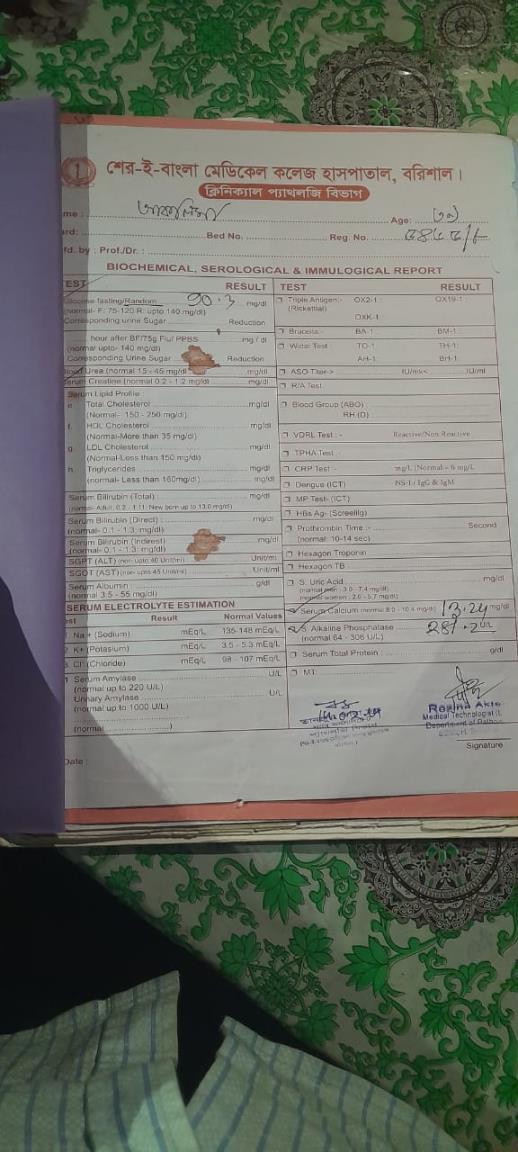 শের-ই-বাংলা মেডিকেল কলেজ হাসপাতাল, বরিশাল।
ক্লিনিক্যাল প্যাথলজি বিভাগ
me : Age:
rd: Bed No. Reg. No.
fd. by : Prof./Dr. :
BIOCHEMICAL, SEROLOGICAL & IMMULOGICAL REPORT
EST RESULT
Glucose fasting/Random 90.3 mg/dl
(normal- F: 75-120 R: upto 140 mg/dl)
Corresponding urine Sugar Reduction
hour after BF/75g Flu/ PPBS mg / dl
(normal upto- 140 mg/dl)
Corresponding Urine Sugar Reduction
Blood Urea (normal 15 - 45 mg/dl mg/dl
Serum Creatine (normal 0.2 - 1.2 mg/dl) mg/dl
Serum Lipid Profile
e. Total Cholesterol mg/dl
(Normal- 150 - 250 mg/dl)
f. HDL Cholesterol mg/dl
(Normal-More than 35 mg/dl)
g. LDL Cholesterol mg/dl
(Normal-Less than 150 mg/dl)
h. Triglycerides mg/dl
(normal- Less than 160mg/dl) mg/dl
Serum Bilirubin (Total) mg/dl
(normal- Adult: 0.2 - 1.11: New born up to 13.0 mg/dl)
Serum Bilirubin (Direct) mg/dl
(normal- 0.1 - 1.3: mg/dl)
Serum Bilirubin (Indirest) mg/dl
(normal- 0.1 - 1.3: mg/dl)
SGPT (ALT) Unit/ml
SGOT (AST) Unit/ml
Serum Albumin g/dl
(normal 3.5 - 55 mg/dl)
SERUM ELECTROLYTE ESTIMATION
est Result Normal Values
Na + (Sodium) mEq/L 135-148 mEq/L
K+ (Potasium) mEq/L 3.5 - 5.3 mEq/L
Cl (Chloride) mEq/L 98 - 107 mEq/L
Serum Amylase U/L
(normal up to 220 U/L)
Urinary Amylase U/L
(normal up to 1000 U/L)
(normal )
Date :
TEST RESULT
Triple Antigen:- OX2-1 : OX19-1 :
(Rickettsial)
OXK-1
Brucella:- BA-1 : BM-1 :
Widal Test : TO-1 : TH-1:
AH-1: BH-1:
ASO Titer-> IU/ml
R/A Test
Blood Group (ABO) :
RH (D)
VDRL Test :- Reactive/Non Reactive
TPHA Test:-
CRP Test :- mg/L (Normal < 6 mg/L
Dengue (ICT) NS-1 / IgG & IgM
MP Test- (ICT)
HBs Ag- (Screeilig)
Prothrombin Time :- Second
(normal: 10-14 sec)
Hexagon Troponin
Hexagon TB
S. Uric Acid mg/dl
(normal men : 3.0 - 7.4 mg/dl)
(normal women : 2.0 - 5.7 mg/dl)
Serum Calcium (normal 8.0 - 10.4 mg/dl) 13.24 mg/dl
S. Alkaline Phosphatase 281.2 U/L
(normal 64 - 306 U/L)
Serum Total Protein : g/dl
MT
Rogina Akte
Medical Technologist
Department of
Signature